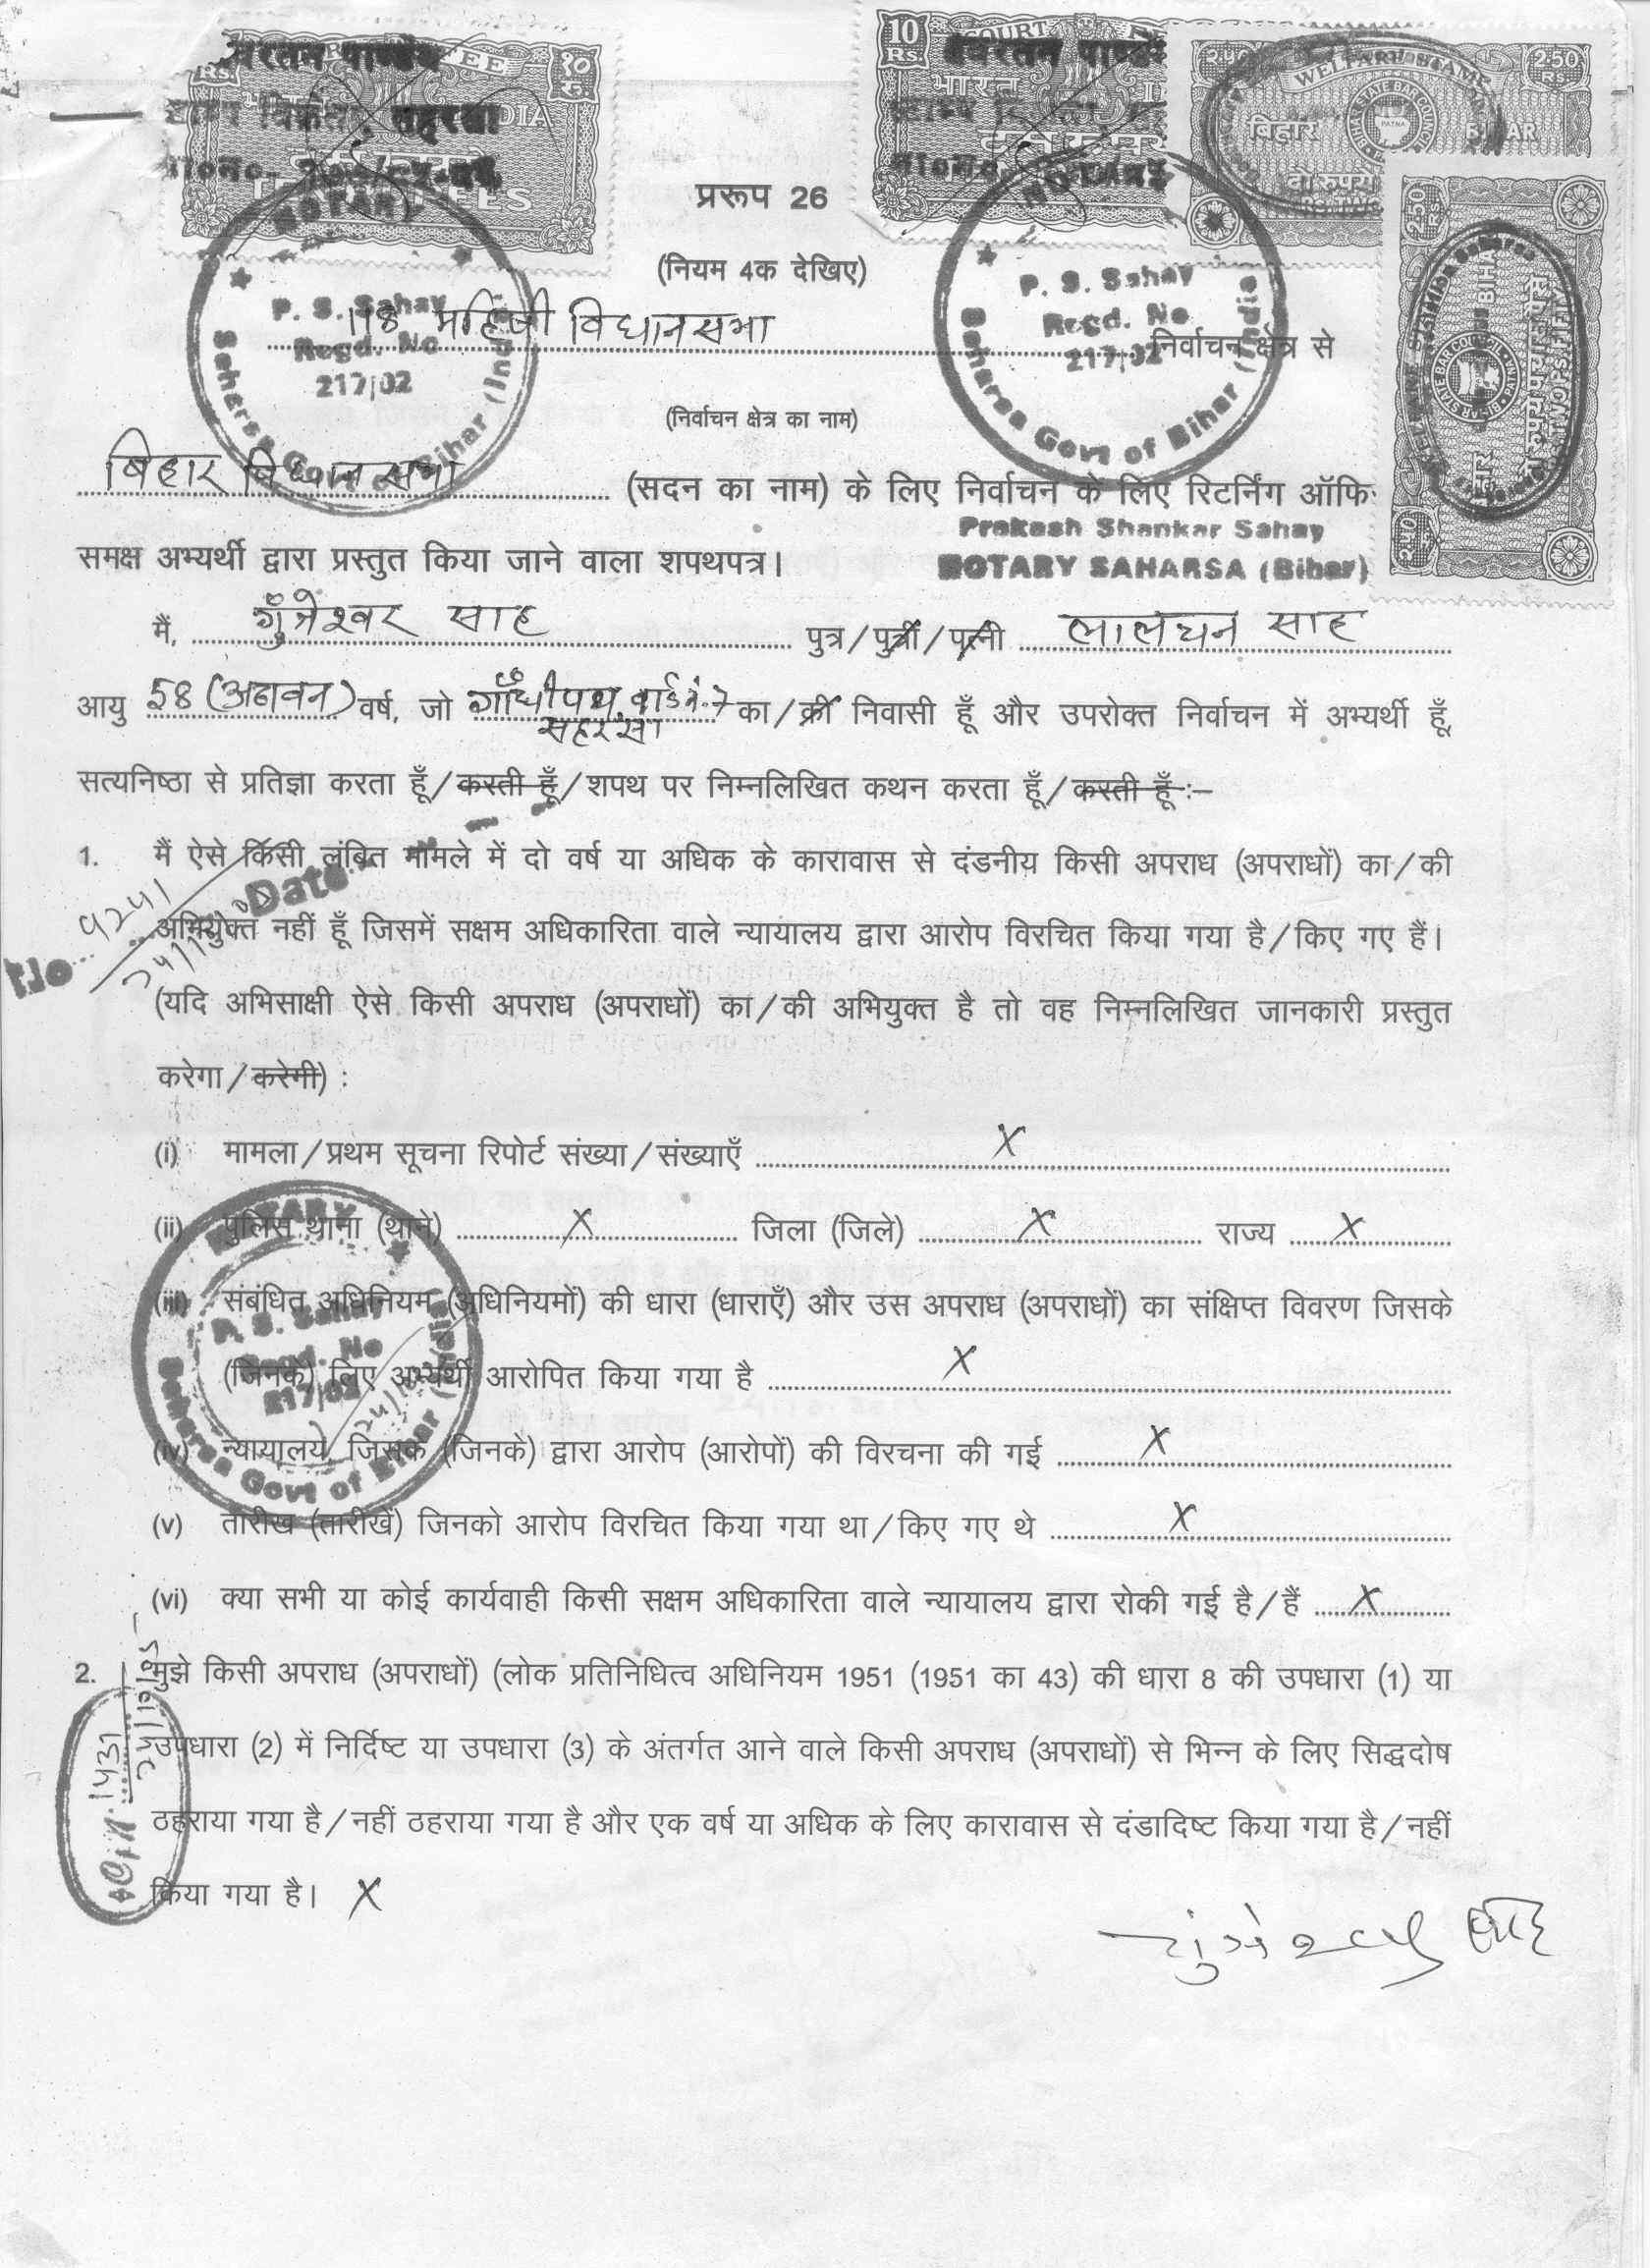 10 Rs.
COURT
भारत
2.50 Rs.
WELFARE STAMP
BIHAR STATE BAR COUNCIL
PATNA
बिहार
BIHAR
प्ररूप 26
(नियम 4क देखिए)
NOTARY
P. S. Sahay
Regd. No
217/02
Saharsa Govt of Bihar (India)
NOTARY
P. S. Sahay
Regd. No
217/02
Saharsa Govt of Bihar (India)
118 महिषी विधानसभा निर्वाचन क्षेत्र से
(निर्वाचन क्षेत्र का नाम)
बिहार विधान सभा (सदन का नाम) के लिए निर्वाचन के लिए रिटर्निंग ऑफि
Prakash Shankar Sahay
NOTARY SAHARSA (Bihar)
समक्ष अभ्यर्थी द्वारा प्रस्तुत किया जाने वाला शपथपत्र।
मैं, गुँजेश्वर साह पुत्र/पुत्री/पत्नी लालधन साह
आयु 58 (अठावन) वर्ष, जो गाँधीपथ, वार्ड नं. 7 सहरसा का/की निवासी हूँ और उपरोक्त निर्वाचन में अभ्यर्थी हूँ,
सत्यनिष्ठा से प्रतिज्ञा करता हूँ/करती हूँ/शपथ पर निम्नलिखित कथन करता हूँ/करती हूँ :–
1. मैं ऐसे किसी लंबित मामले में दो वर्ष या अधिक के कारावास से दंडनीय किसी अपराध (अपराधों) का/की
अभियुक्त नहीं हूँ जिसमें सक्षम अधिकारिता वाले न्यायालय द्वारा आरोप विरचित किया गया है/किए गए हैं।
No
Date
(यदि अभिसाक्षी ऐसे किसी अपराध (अपराधों) का/की अभियुक्त है तो वह निम्नलिखित जानकारी प्रस्तुत
करेगा/करेगी) :
(i) मामला/प्रथम सूचना रिपोर्ट संख्या/संख्याएँ X
(ii) पुलिस थाना (थाने) X जिला (जिले) X राज्य X
(iii) संबंधित अधिनियम (अधिनियमों) की धारा (धाराएँ) और उस अपराध (अपराधों) का संक्षिप्त विवरण जिसके
(जिनके) लिए अभ्यर्थी आरोपित किया गया है X
(iv) न्यायालय जिसके (जिनके) द्वारा आरोप (आरोपों) की विरचना की गई X
NOTARY
P. S. Sahay
Regd. No
217/02
Saharsa Govt of Bihar (India)
(v) तारीख (तारीखें) जिनको आरोप विरचित किया गया था/किए गए थे X
(vi) क्या सभी या कोई कार्यवाही किसी सक्षम अधिकारिता वाले न्यायालय द्वारा रोकी गई है/हैं X
2. मुझे किसी अपराध (अपराधों) (लोक प्रतिनिधित्व अधिनियम 1951 (1951 का 43) की धारा 8 की उपधारा (1) या
उपधारा (2) में निर्दिष्ट या उपधारा (3) के अंतर्गत आने वाले किसी अपराध (अपराधों) से भिन्न के लिए सिद्धदोष
ठहराया गया है/नहीं ठहराया गया है और एक वर्ष या अधिक के लिए कारावास से दंडादिष्ट किया गया है/नहीं
किया गया है। X
गुंजेश्वर साह